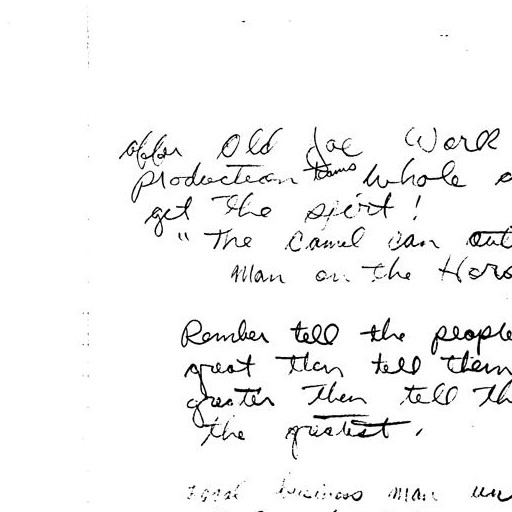 offer Old Joe Work
Production teams whole
get the spirit!
"The Camel can out
Man on the Hors
Rember tell the people
great then tell them
greater then tell th
the greatest.
business man un